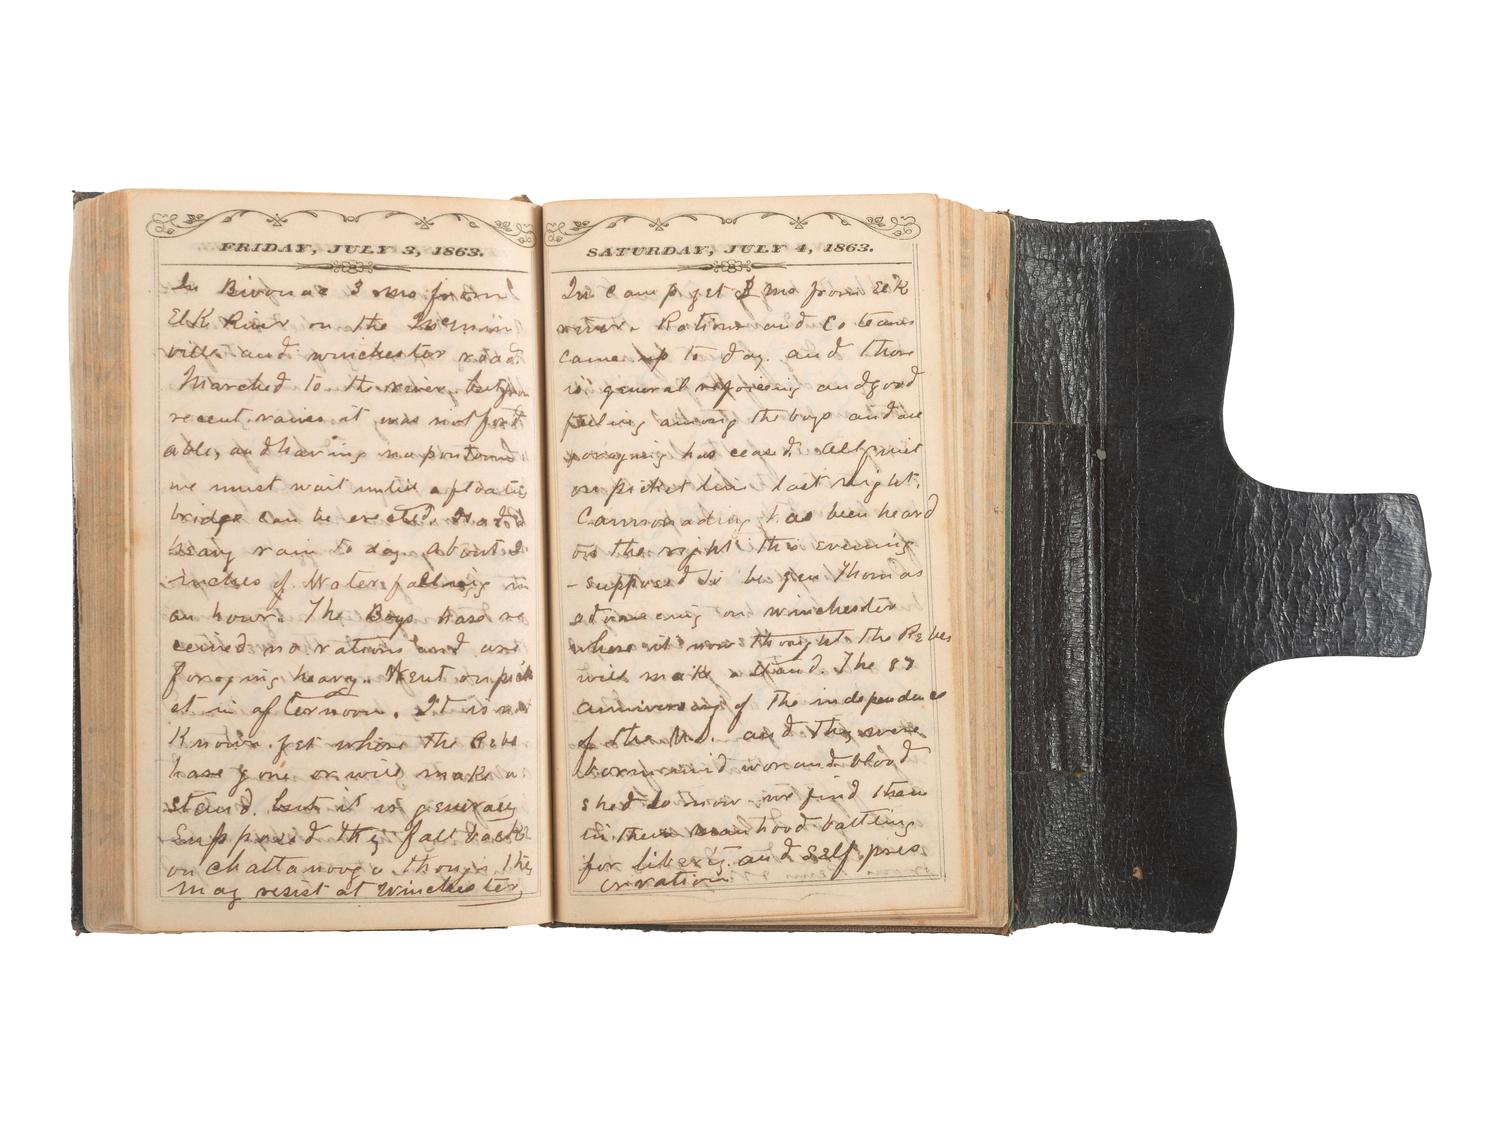 FRIDAY, JULY 3, 1863.
In Bivouac 3 ms from
Elk River on the
ville and winchester road
Marched to the river, but
recent raines it was not ford
able, and having no pontoons
we must wait untill a floating
bridge can be erected. Had a
heavy rain to day. about 2
inches of Water falling in
an hour. The Boys have re
ceived no rations and are
foraging heavy. Went on pick
et in afternoon. It is not
Known yet where the Rebs
have gone or will make a
stand. but it is generaly
Supposed they fall back
on chattanooga though they
may resist at Winchester
SATURDAY, JULY 4, 1863.
In Camp yet 3 ms from Elk
river. Rations and Co teams
came up to day. and there
is general rejoicing and good
feeling among the boys and
foraging has ceasd. all quiet
on picket line last night.
Cannonading has been heard
on the right this evening
- supposed to be gen Thomas
advancing on winchester
where it now thought the Rebs
will make a stand. The 87
aniversary of the independence
of the U.S. and they were
born amid war and blood
shed so now we find them
in their manhood battling
for liberty and Self pres
ervation